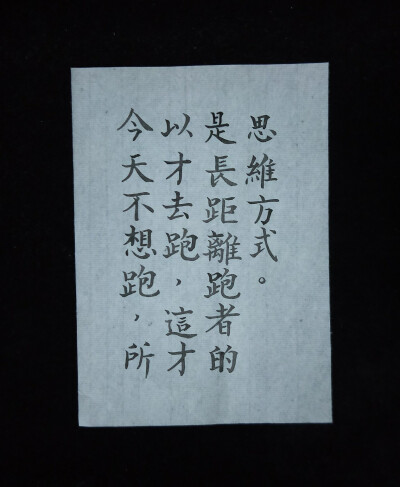 今天不想跑，所
以才去跑，這才
是長距離跑者的
思維方式。